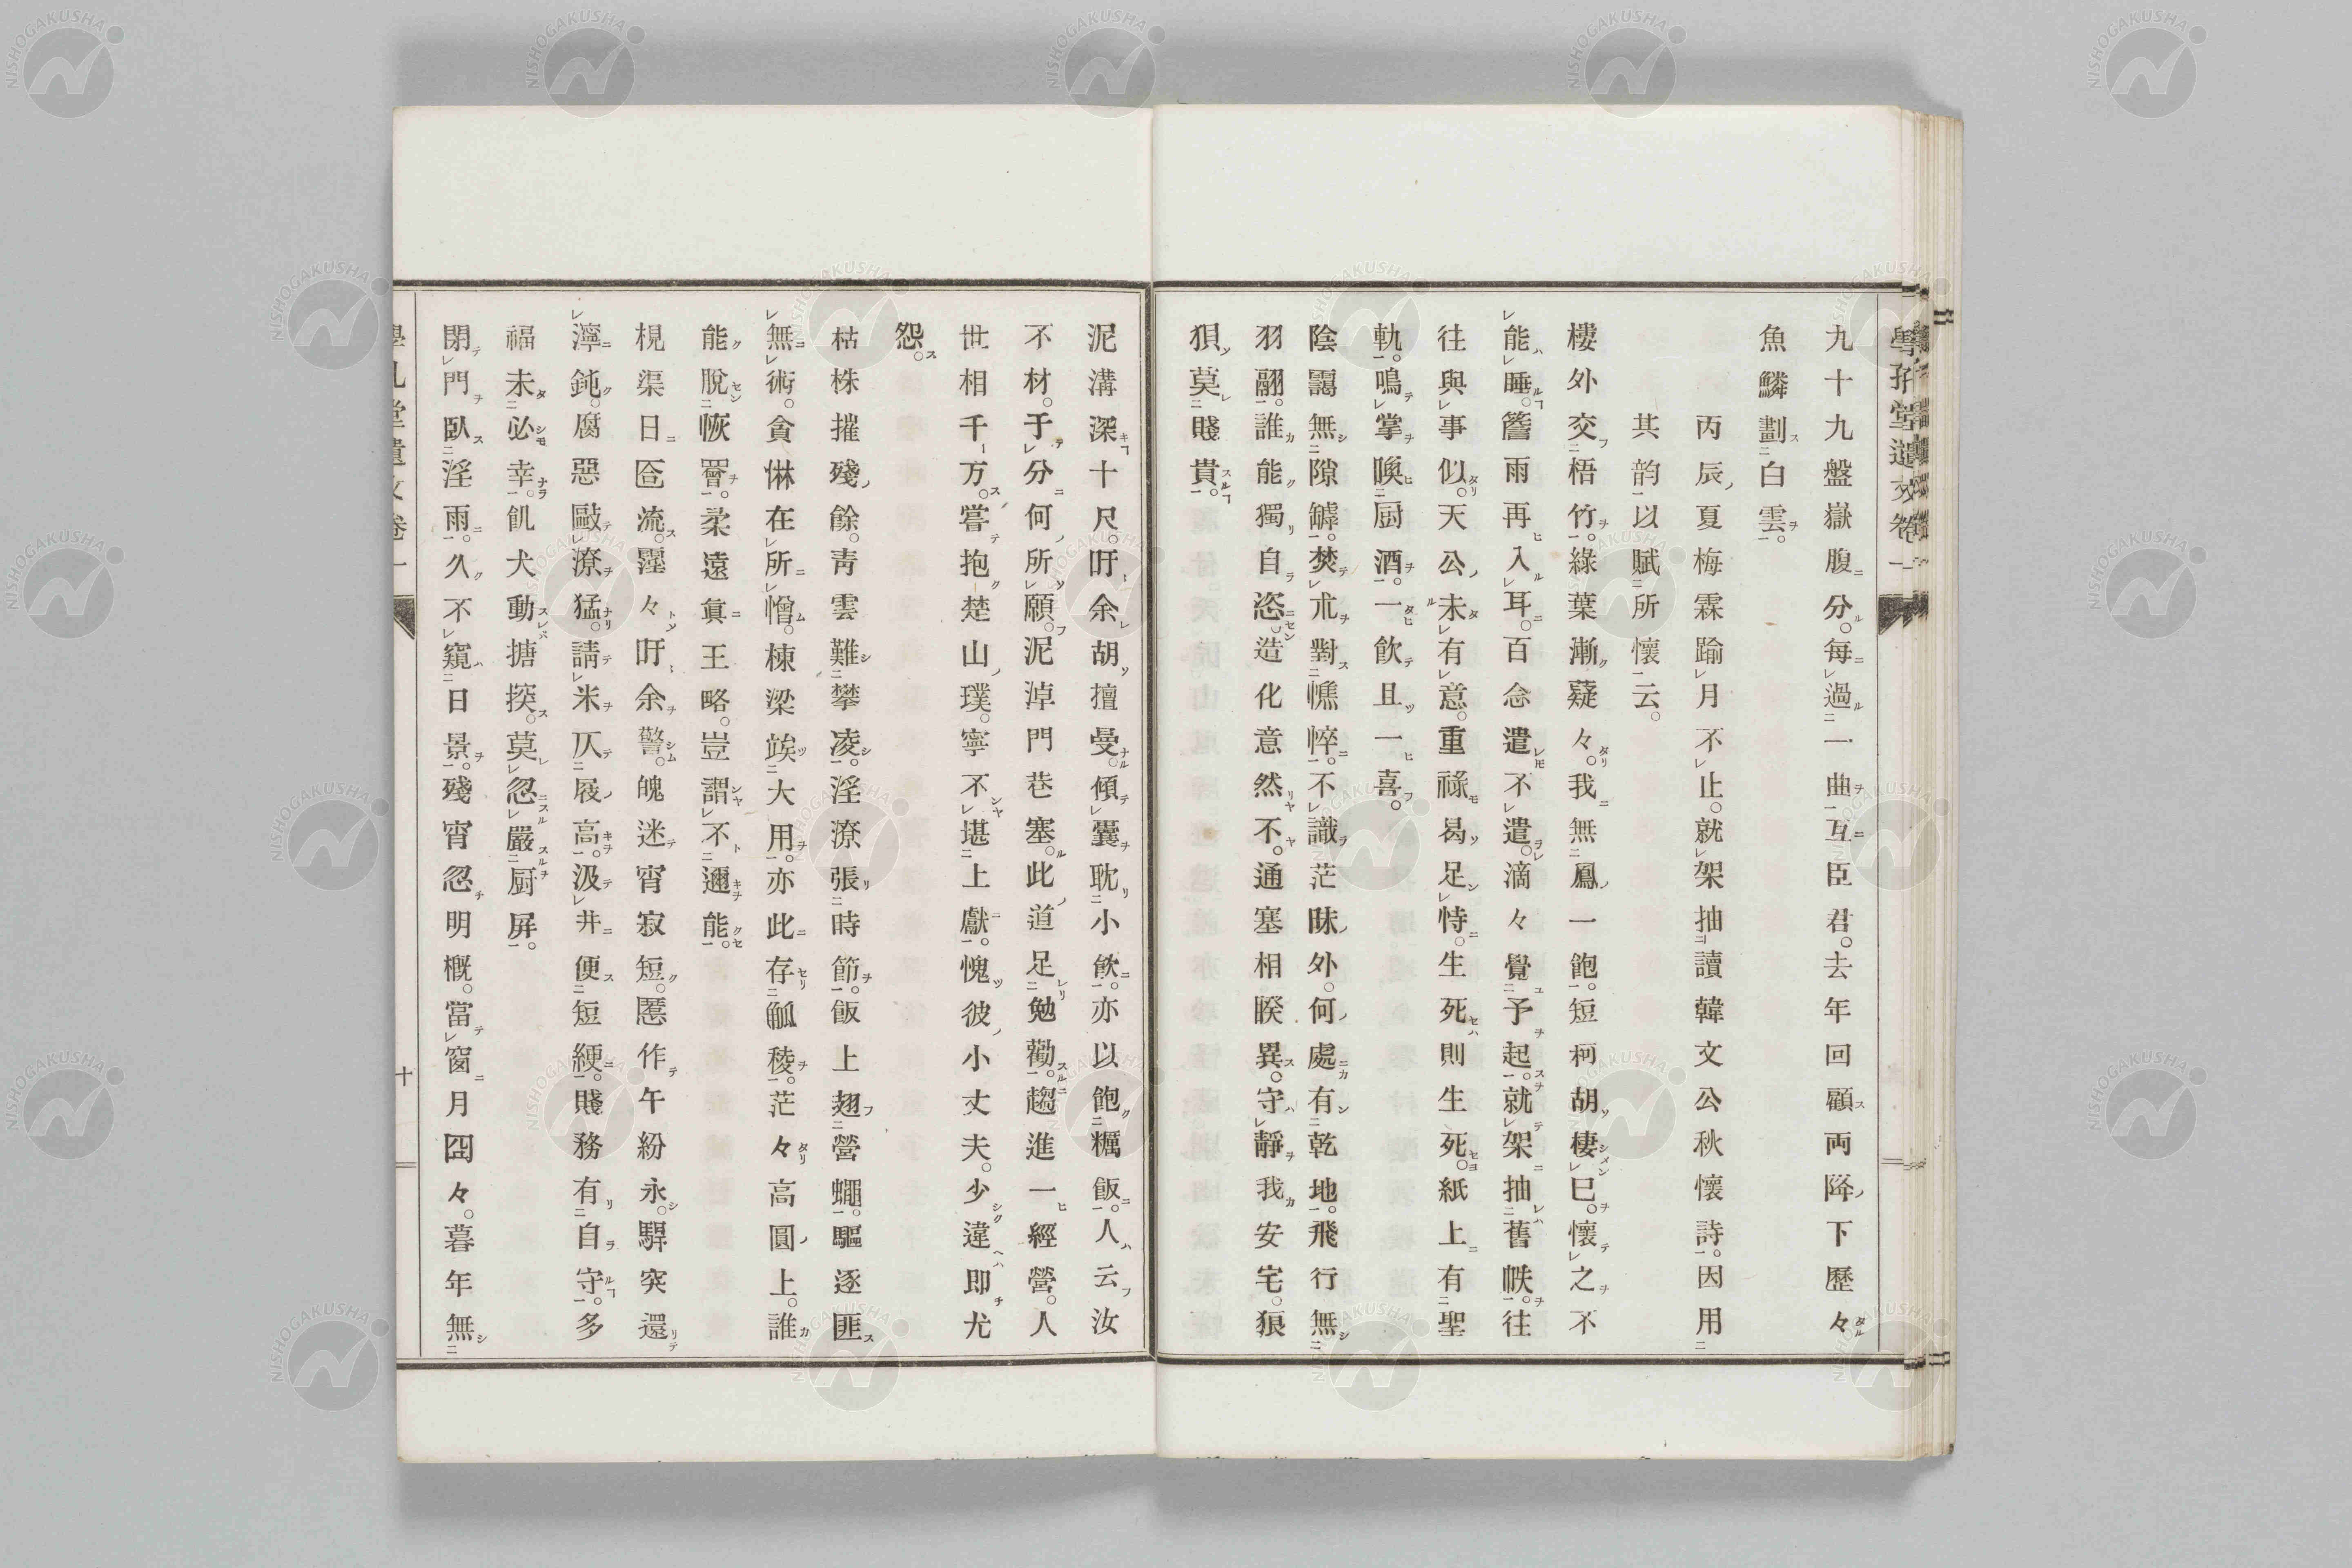 九十九盤嶽腹分。每過一曲互臣君。去年回顧両降下歷々
魚鱗劃白雲。
丙辰夏梅霖踰月不止。就架抽讀韓文公秋懷詩。因用
其韵以賦所懷云。
樓外交梧竹。綠葉漸薿々。我無鳳一飽。短柯胡棲巳。懷之不
能睡。簷雨再入耳。百念遣不遣。滴々覺予起。就架抽舊帙。往
往與事似。天公未有意。重祿曷足恃。生死則生死。紙上有聖
軌。鳴掌喚厨酒。一飮且一喜。
陰靄無隙罅。焚朮對憔悴。不識茫昧外。何處有乾地。飛行無
羽翮。誰能獨自恣。造化意然不。通塞相睽異。守靜我安宅。狼
狽莫賤貴。
泥溝深十尺。吁余胡擅曼。傾囊耽小飮。亦以飽糲飯。人云汝
不材。于分何所願。泥淖門巷塞。此道足勉勸。趨進一經營。人
世相千万。嘗抱楚山璞。寧不堪上獻。愧彼小丈夫。少違即尤
怨。
枯株摧殘餘。靑雲難攀凌。淫潦張時節。飯上翅營蠅。驅逐匪
無術。貪惏在所憎。棟梁竢大用。亦此存觚稜。茫々高圓上。誰
能脫恢罾。柔遠眞王略。豈謂不邇能。
梘渠日匼流。霪々吁余警。魄迷宵寂短。慝作午紛永。驛突還
濘鈍。腐惡敺潦猛。請米仄屐高。汲井便短綆。賤務有自守。多
福未必幸。飢犬動搪揬。莫忽嚴厨屛。
閉門臥淫雨。久不窺日景。殘宵忽明概。當窗月囧々。暮年無
十